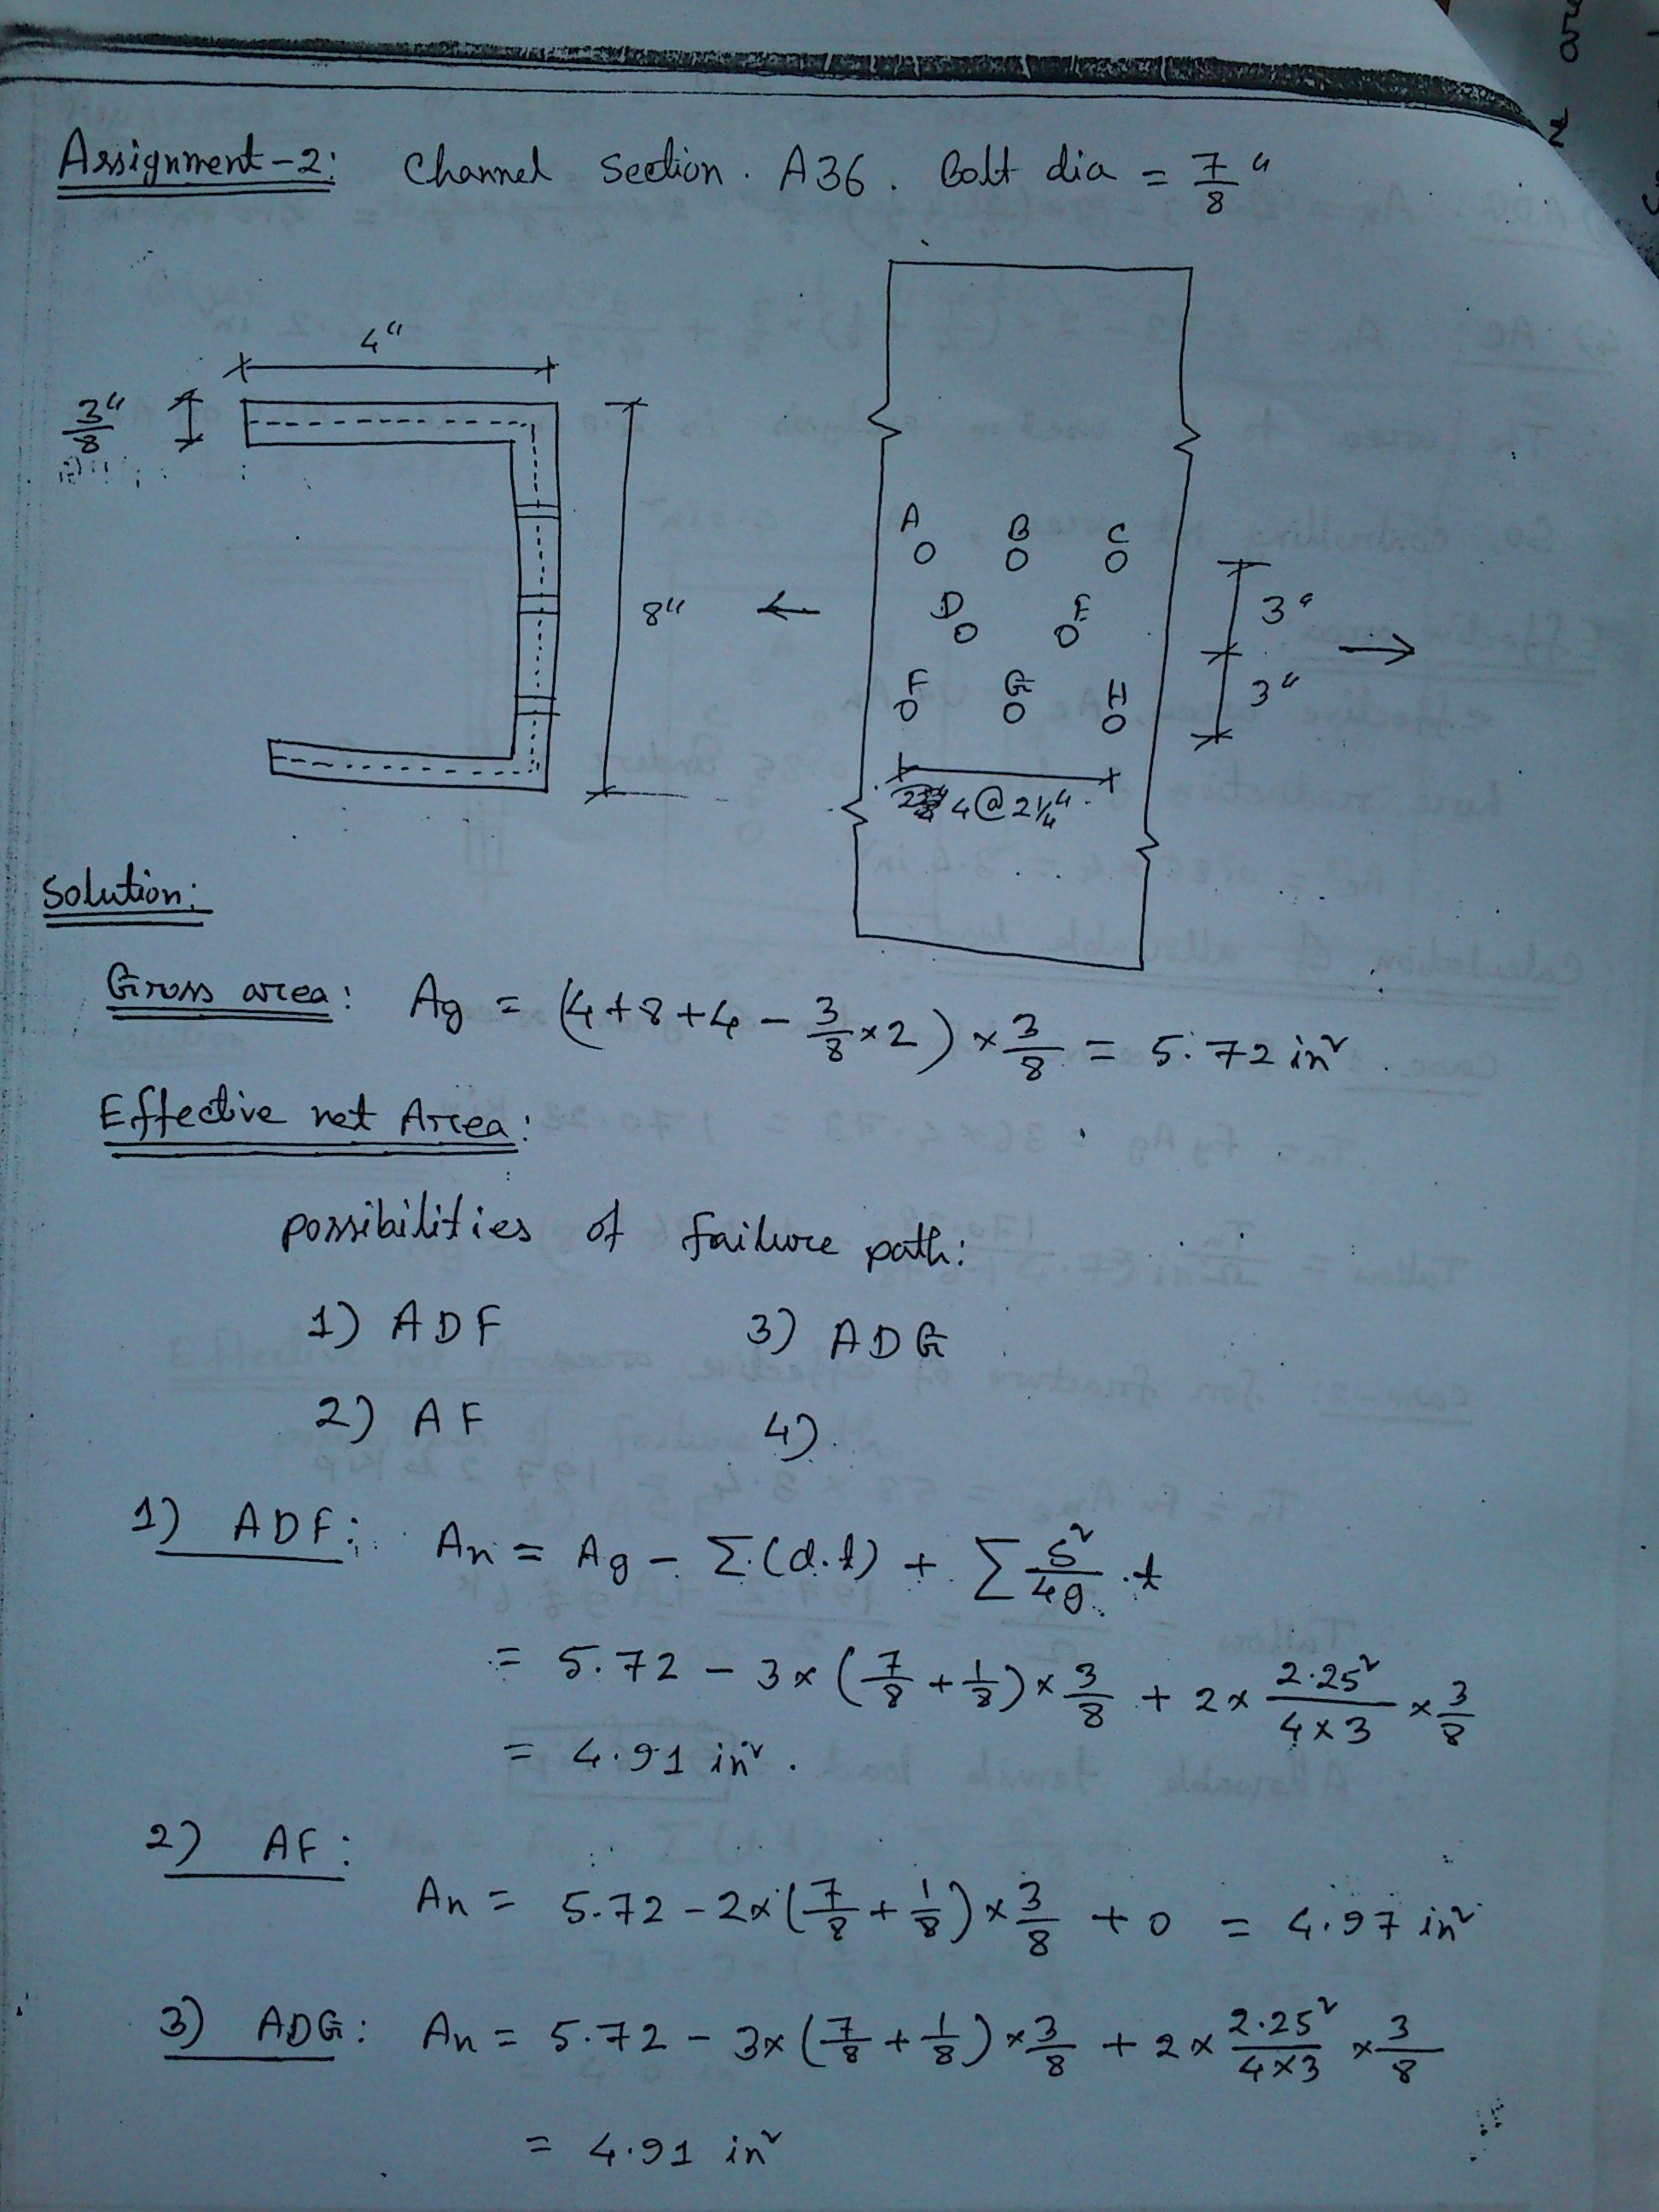 Assignment-2: Channel Section. A36. Bolt dia = 7/8"
4"
3/8"
8"
A B C
D E
F G H
3"
3"
4@2 1/4"
Solution:
Gross area: Ag = (4+8+4 - 3/8 × 2) × 3/8 = 5.72 in².
Effective net Area:
possibilities of failure path:
1) ADF 3) ADG
2) AF 4)
1) ADF: An = Ag - Σ(d.t) + Σ s²/4g .t
= 5.72 - 3 × (7/8 + 1/8) × 3/8 + 2 × 2.25²/4×3 × 3/8
= 4.91 in².
2) AF:
An = 5.72 - 2 × (7/8 + 1/8) × 3/8 + 0 = 4.97 in²
3) ADG: An = 5.72 - 3 × (7/8 + 1/8) × 3/8 + 2 × 2.25²/4×3 × 3/8
= 4.91 in²